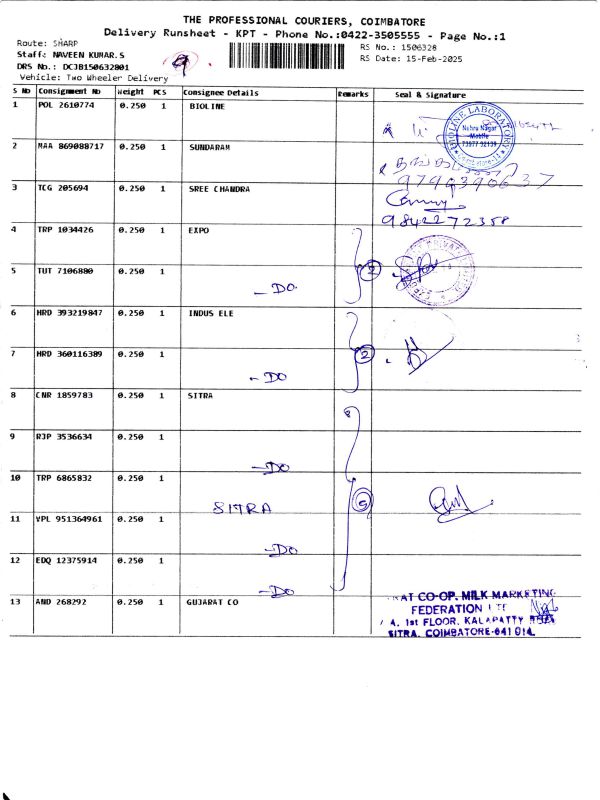 THE PROFESSIONAL COURIERS, COIMBATORE
Delivery Runsheet - KPT - Phone No.:0422-3505555 - Page No.:1
Route: SHARP
RS No.: 1506328
Staff: NAVEEN KUMAR.S
RS Date: 15-Feb-2025
DRS No.: DCJB150632801
Vehicle: Two Wheeler Delivery
S No Consignment No Weight PCS Consignee Details Remarks Seal & Signature
1 POL 2610774 0.250 1 BIOLINE
BIOLINE LABORATORY
Nehru Nagar
Mobile
2 MAA 869088717 0.250 1 SUNDARAM
3 TCG 205694 0.250 1 SREE CHANDRA
9842272358
4 TRP 1034426 0.250 1 EXPO
5 TUT 7106880 0.250 1
- DO 2
6 HRD 393219847 0.250 1 INDUS ELE
7 HRD 360116389 0.250 1
- DO 2
8 CNR 1859783 0.250 1 SITRA
9 RJP 3536634 0.250 1
- DO
10 TRP 6865832 0.250 1
SITRA 5
11 VPL 951364961 0.250 1
- DO
12 EDQ 12375914 0.250 1
- DO
13 AND 268292 0.250 1 GUJARAT CO
RAT CO-OP. MILK MARKETING
FEDERATION LTD
A, 1st FLOOR, KALAPATTY ROAD
SITRA, COIMBATORE-641 014.